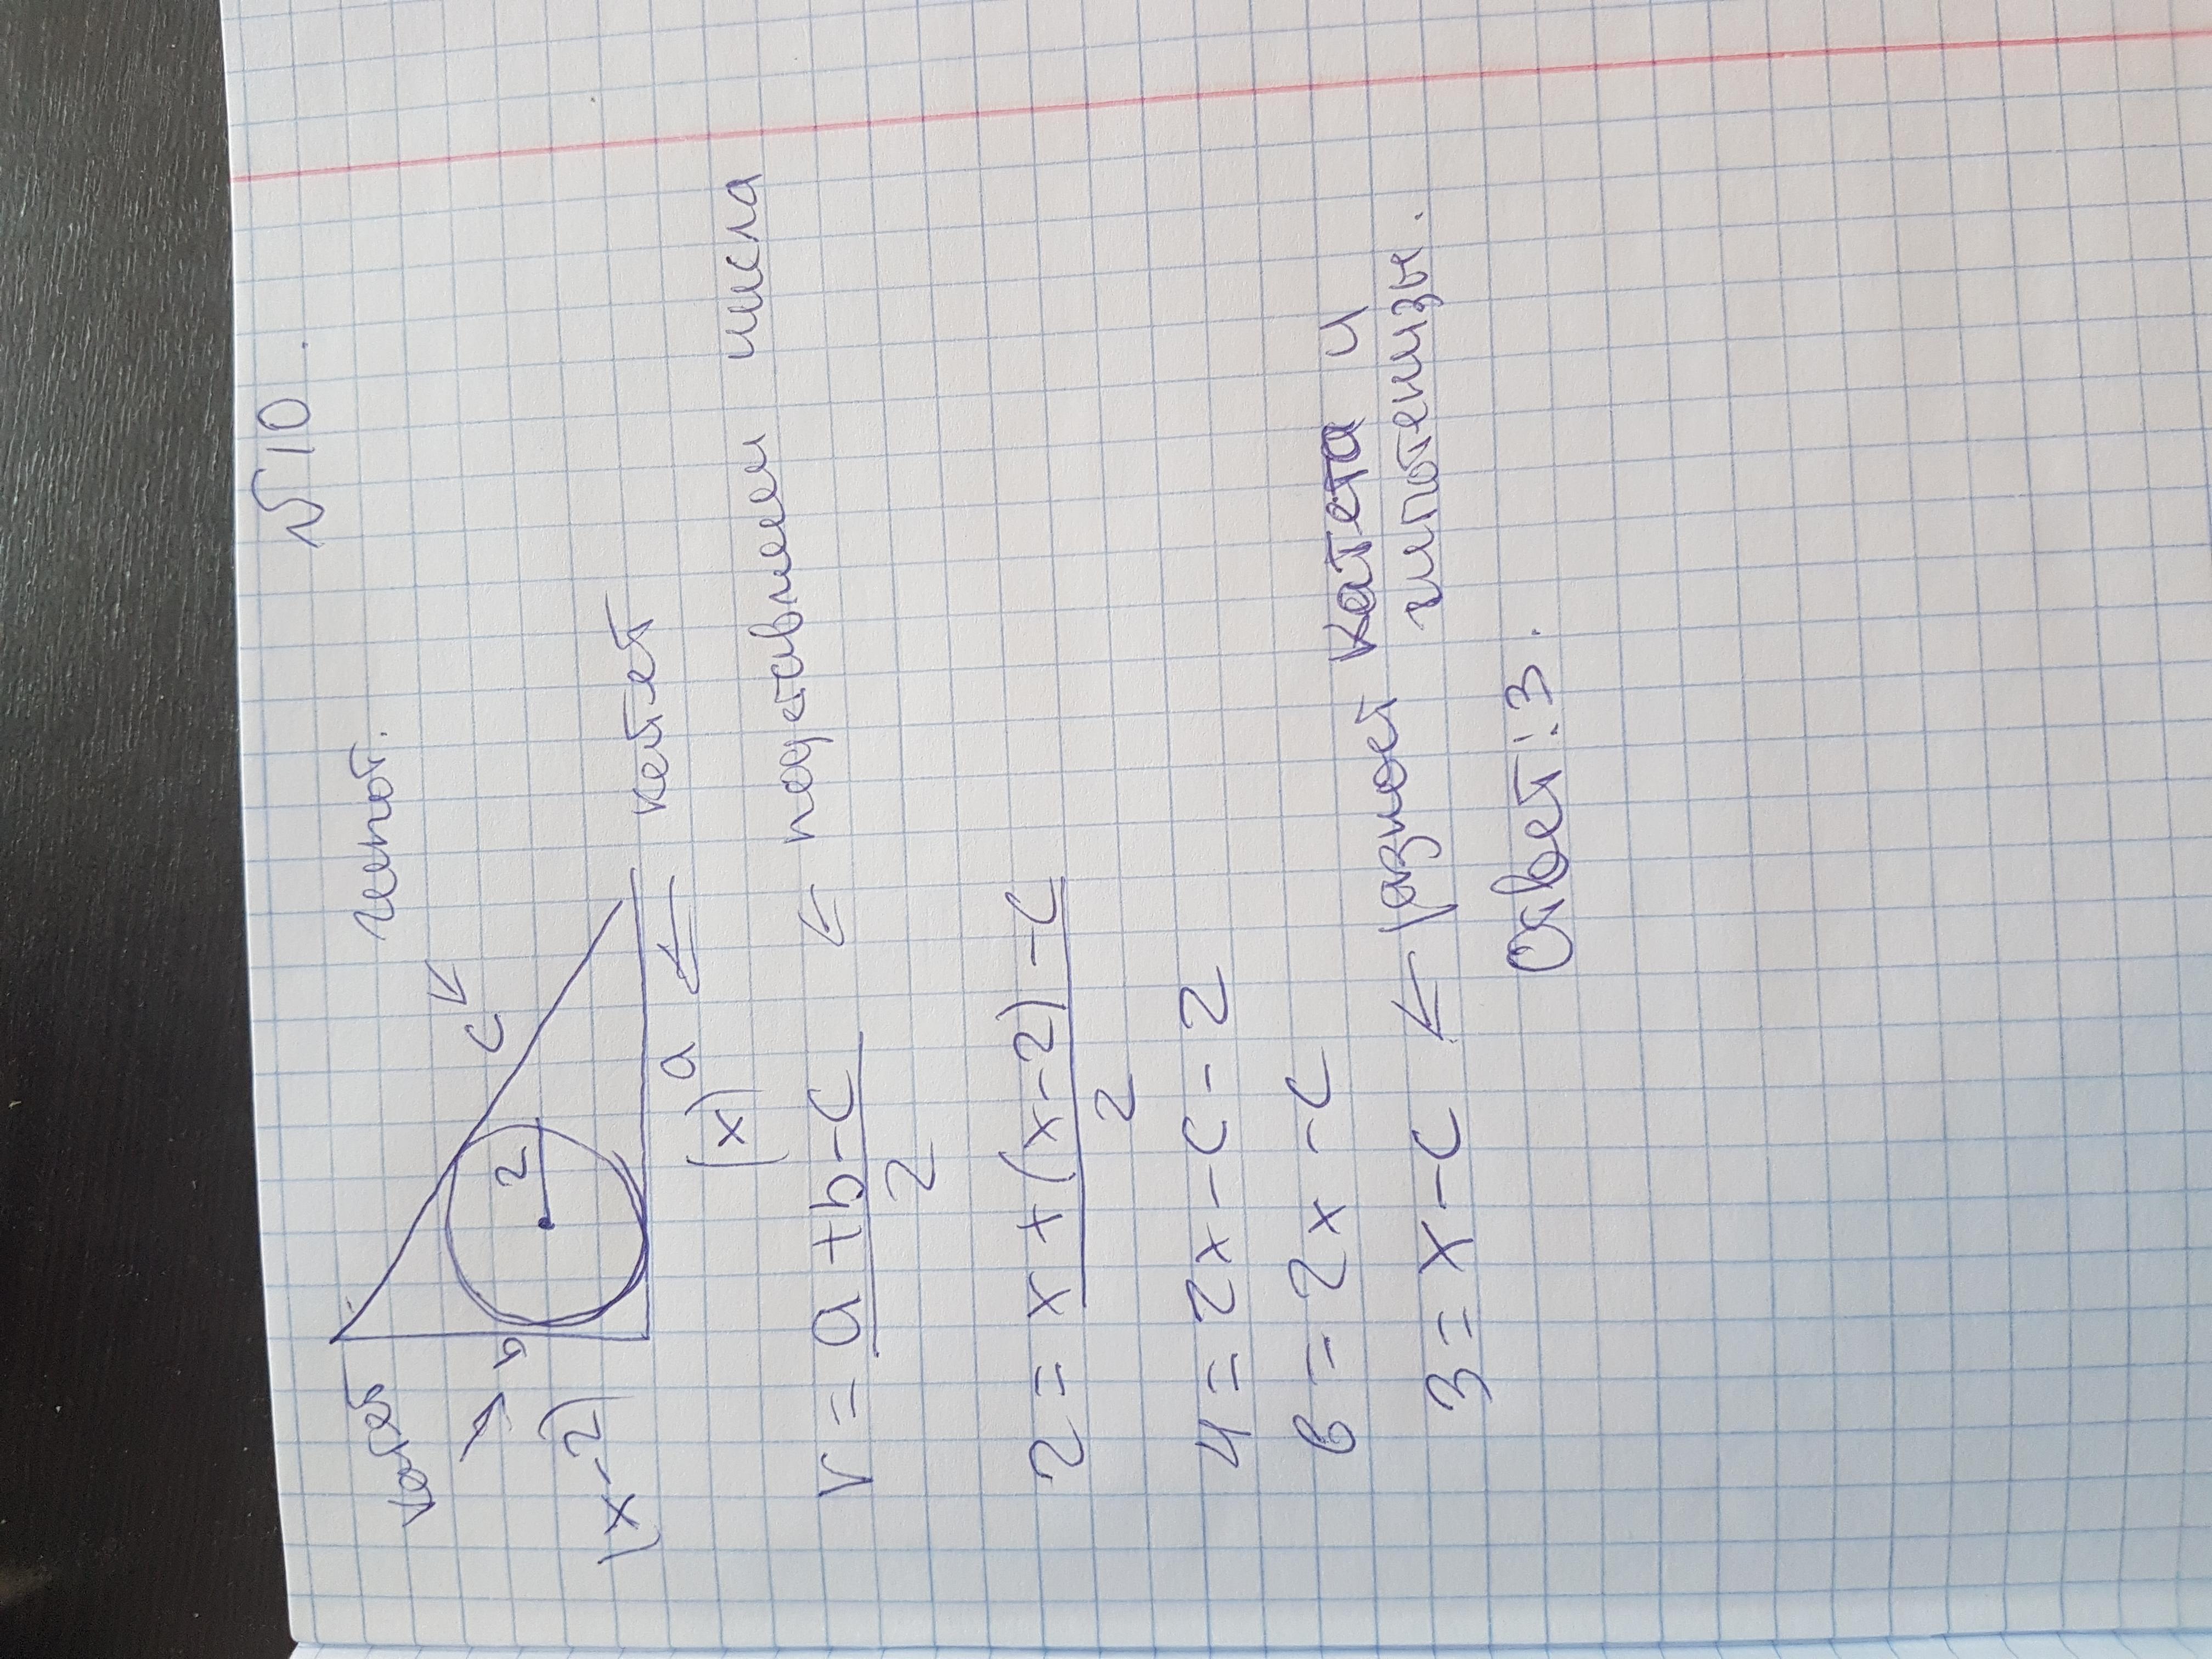 №10.
катет
гипот.
c
b
2
(x-2)
(x) a ← катет
r = a+b-c / 2 ← подставляем числа
2 = x+(x-2)-c / 2
4 = 2x-c-2
6 = 2x-c
3 = x-c ← разност катета и
гипотенизы.
Ответ: 3.